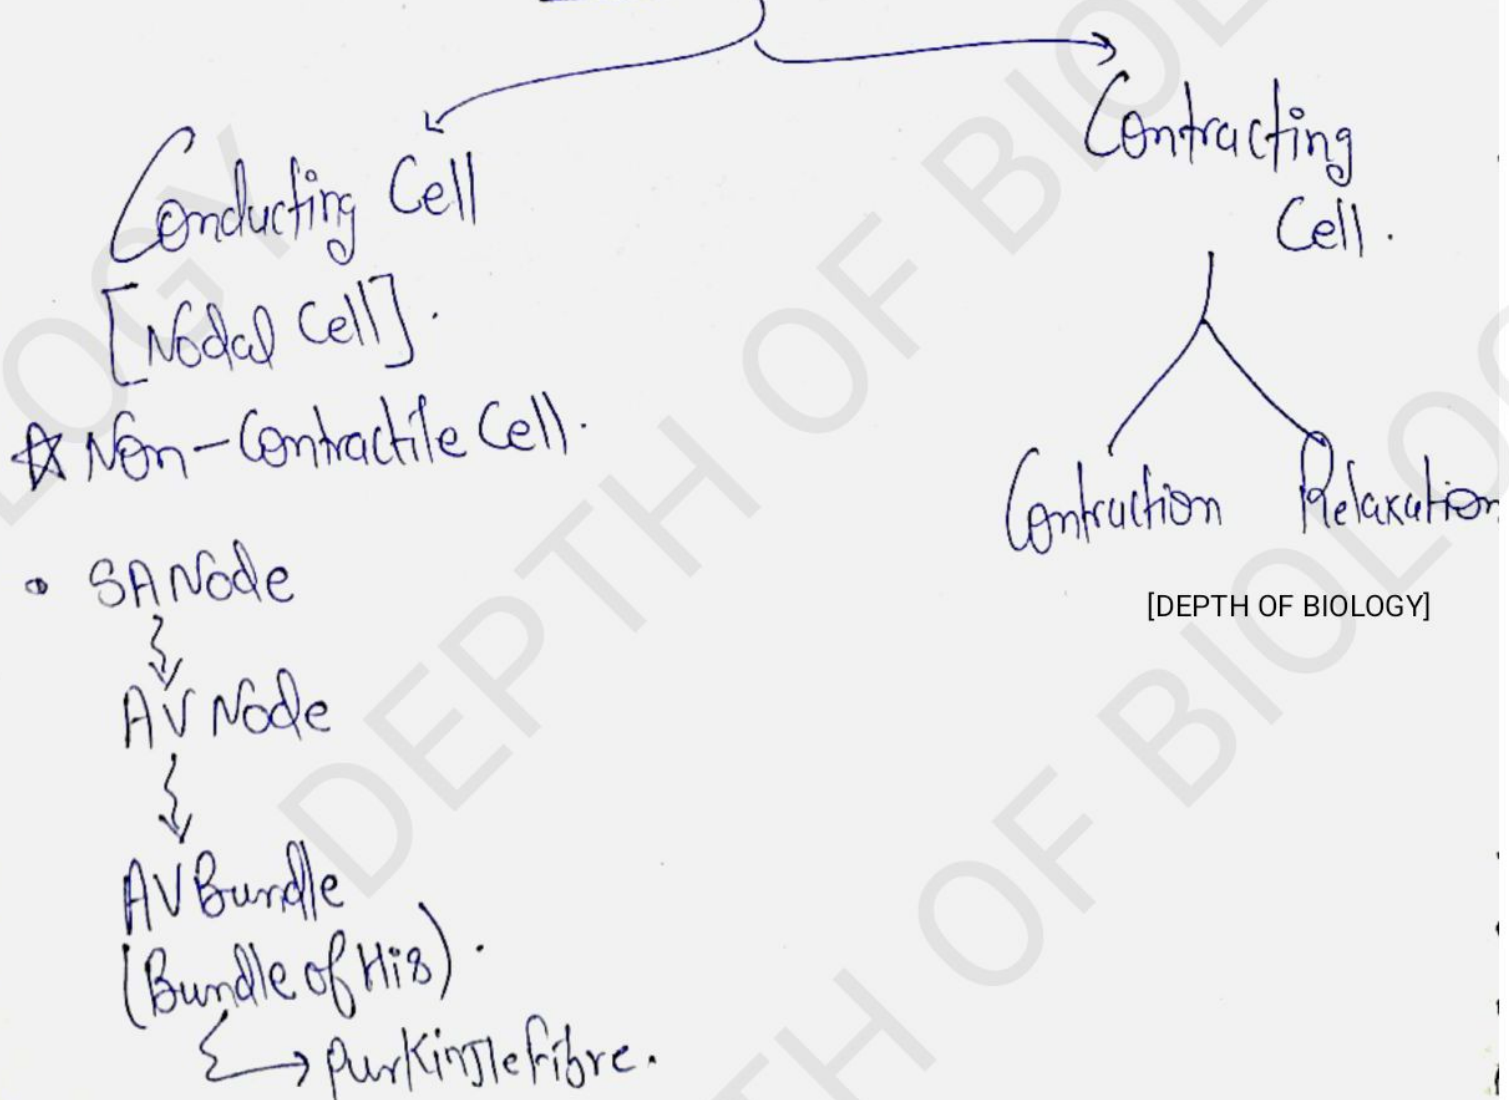 Conducting Cell
[Nodal Cell].
☆ Non-Contractile Cell.
• SA Node
AV Node
AV Bundle
(Bundle of His).
Purkinjle fibre.
Contracting
Cell.
Contraction Relaxation
[DEPTH OF BIOLOGY]
DEPTH OF BIOLOGY
DEPTH OF BIOLOGY
OLOGY